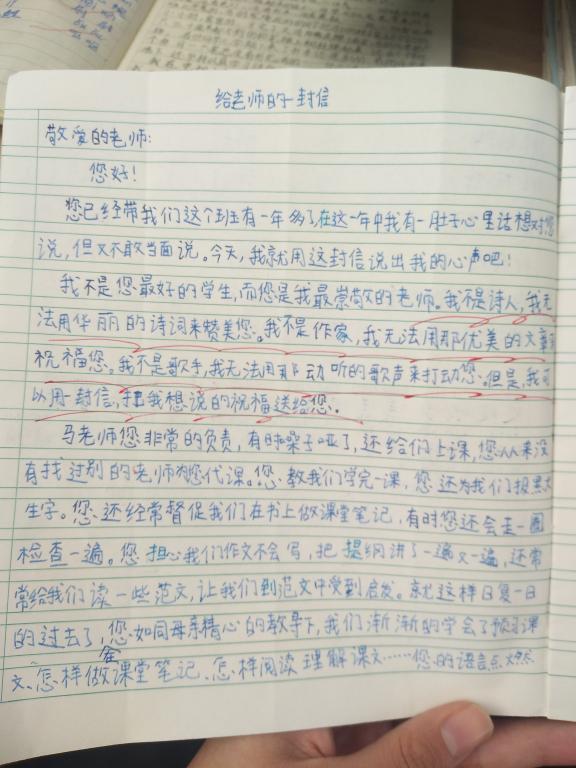 给老师的一封信
敬爱的老师:
您好!
您已经带我们这个班有一年多了在这一年中我有一肚子心里话想对您
说,但又不敢当面说。今天,我就用这封信说出我的心声吧!
我不是您最好的学生,而您是我最崇敬的老师。我不是诗人,我无
法用华丽的诗词来赞美您。我不是作家,我无法用那优美的文章
祝福您。我不是歌手,我无法用那动听的歌声来打动您。但是,我可
以用一封信,把我想说的祝福送给您。
马老师您非常的负责,有时嗓子哑了,还给们上课,您从来没
有找过别的老师为您代课。您教我们学完一课,您还为我们报黑
生字。您还经常督促我们在书上做课堂笔记,有时您还会走一圈
检查一遍。您担心我们作文不会写,把提纲讲了一遍又一遍,还常
常给我们读一些范文,让我们到范文中受到启发。就这样日复一日
的过去了,您如同母亲精心的教导下,我们渐渐的学会了预习课
文、怎样做课堂笔记、怎样阅读理解课文……您的语言点